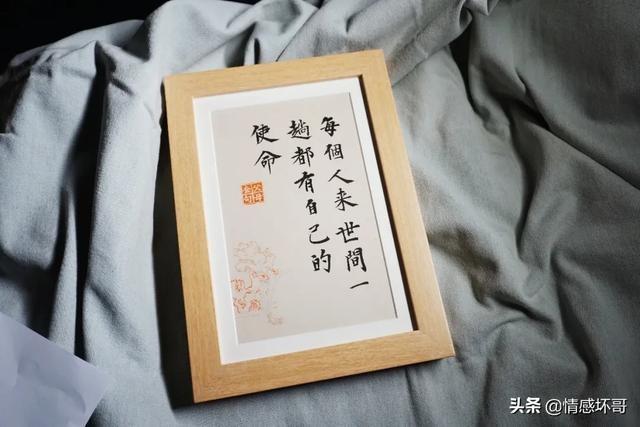 每個人来世間一
趟都有自己的
使命
头条 @情感坏哥